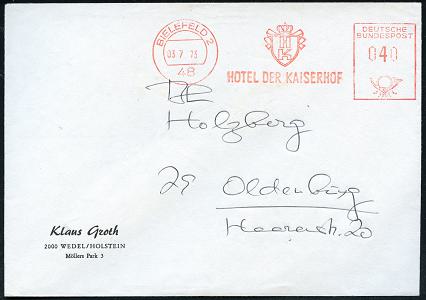 BIELEFELD 2
03.7.73
48
HK
HOTEL DER KAISERHOF
DEUTSCHE
BUNDESPOST
040
Holzberg
29 Oldenburg
Haarenstr. 20
Klaus Groth
2000 WEDEL/HOLSTEIN
Möllers Park 3